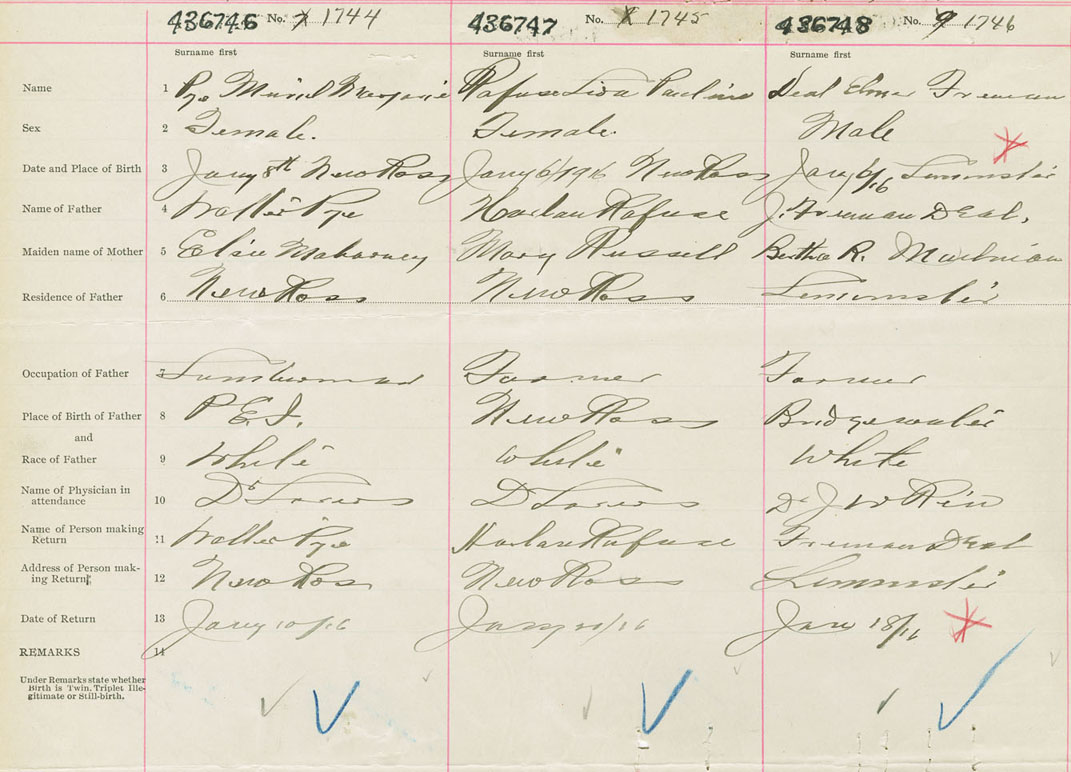 436746 No. 1744 436747 No. 1745 436748 No. 1746
Surname first Surname first Surname first
Name 1 Pye Muriel Marjorie Rafuse Pauline Deal Elmer Freeman
Sex 2 Female. Female. Male
Date and Place of Birth 3 Jany 8th New Ross Jany 6/1916 New Ross Jany 6/16
Name of Father 4 Walter Pye Harlan Rafuse J. Freeman Deal,
Maiden name of Mother 5 Elsie Mahoney Mary Russell Bertha R.
Residence of Father 6 New Ross New Ross
Occupation of Father 7 Lumberman Farmer Farmer
Place of Birth of Father 8 P.E.I. New Ross Bridgewater
and
Race of Father 9 White White White
Name of Physician in
attendance 10 Dr Dr
Name of Person making
Return 11 Walter Pye Harlan Rafuse Freeman Deal
Address of Person mak-
ing Return 12 New Ross New Ross
Date of Return 13 Jany 10/16 Jany /16 Jan 18/16
REMARKS 14
Under Remarks state whether
Birth is Twin, Triplet Ille-
gitimate or Still-birth.